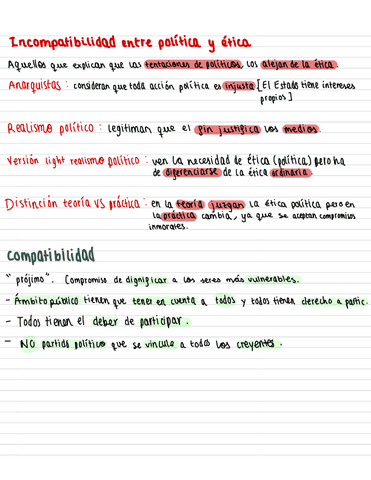 Incompatibilidad entre política y ética
Aquellos que explican que las tentaciones de políticos, los alejan de la ética.
Anarquistas : consideran que toda acción política es injusta [El Estado tiene intereses
propios]
Realismo político : legitiman que el fin justifica los medios.
Versión light realismo político : ven la necesidad de ética (política) pero ha
de diferenciarse de la ética ordinaria.
Distinción teoría VS práctica : en la teoría juzgan la ética política pero en
la práctica cambia, ya que se aceptan compromisos
inmorales.
Compatibilidad
"prójimo". Compromiso de dignificar a los seres más vulnerables.
- Ámbito público tienen que tener en cuenta a todos y todos tienen derecho a partic.
- Todos tienen el deber de participar.
- NO partido político que se vincule a todos los creyentes.